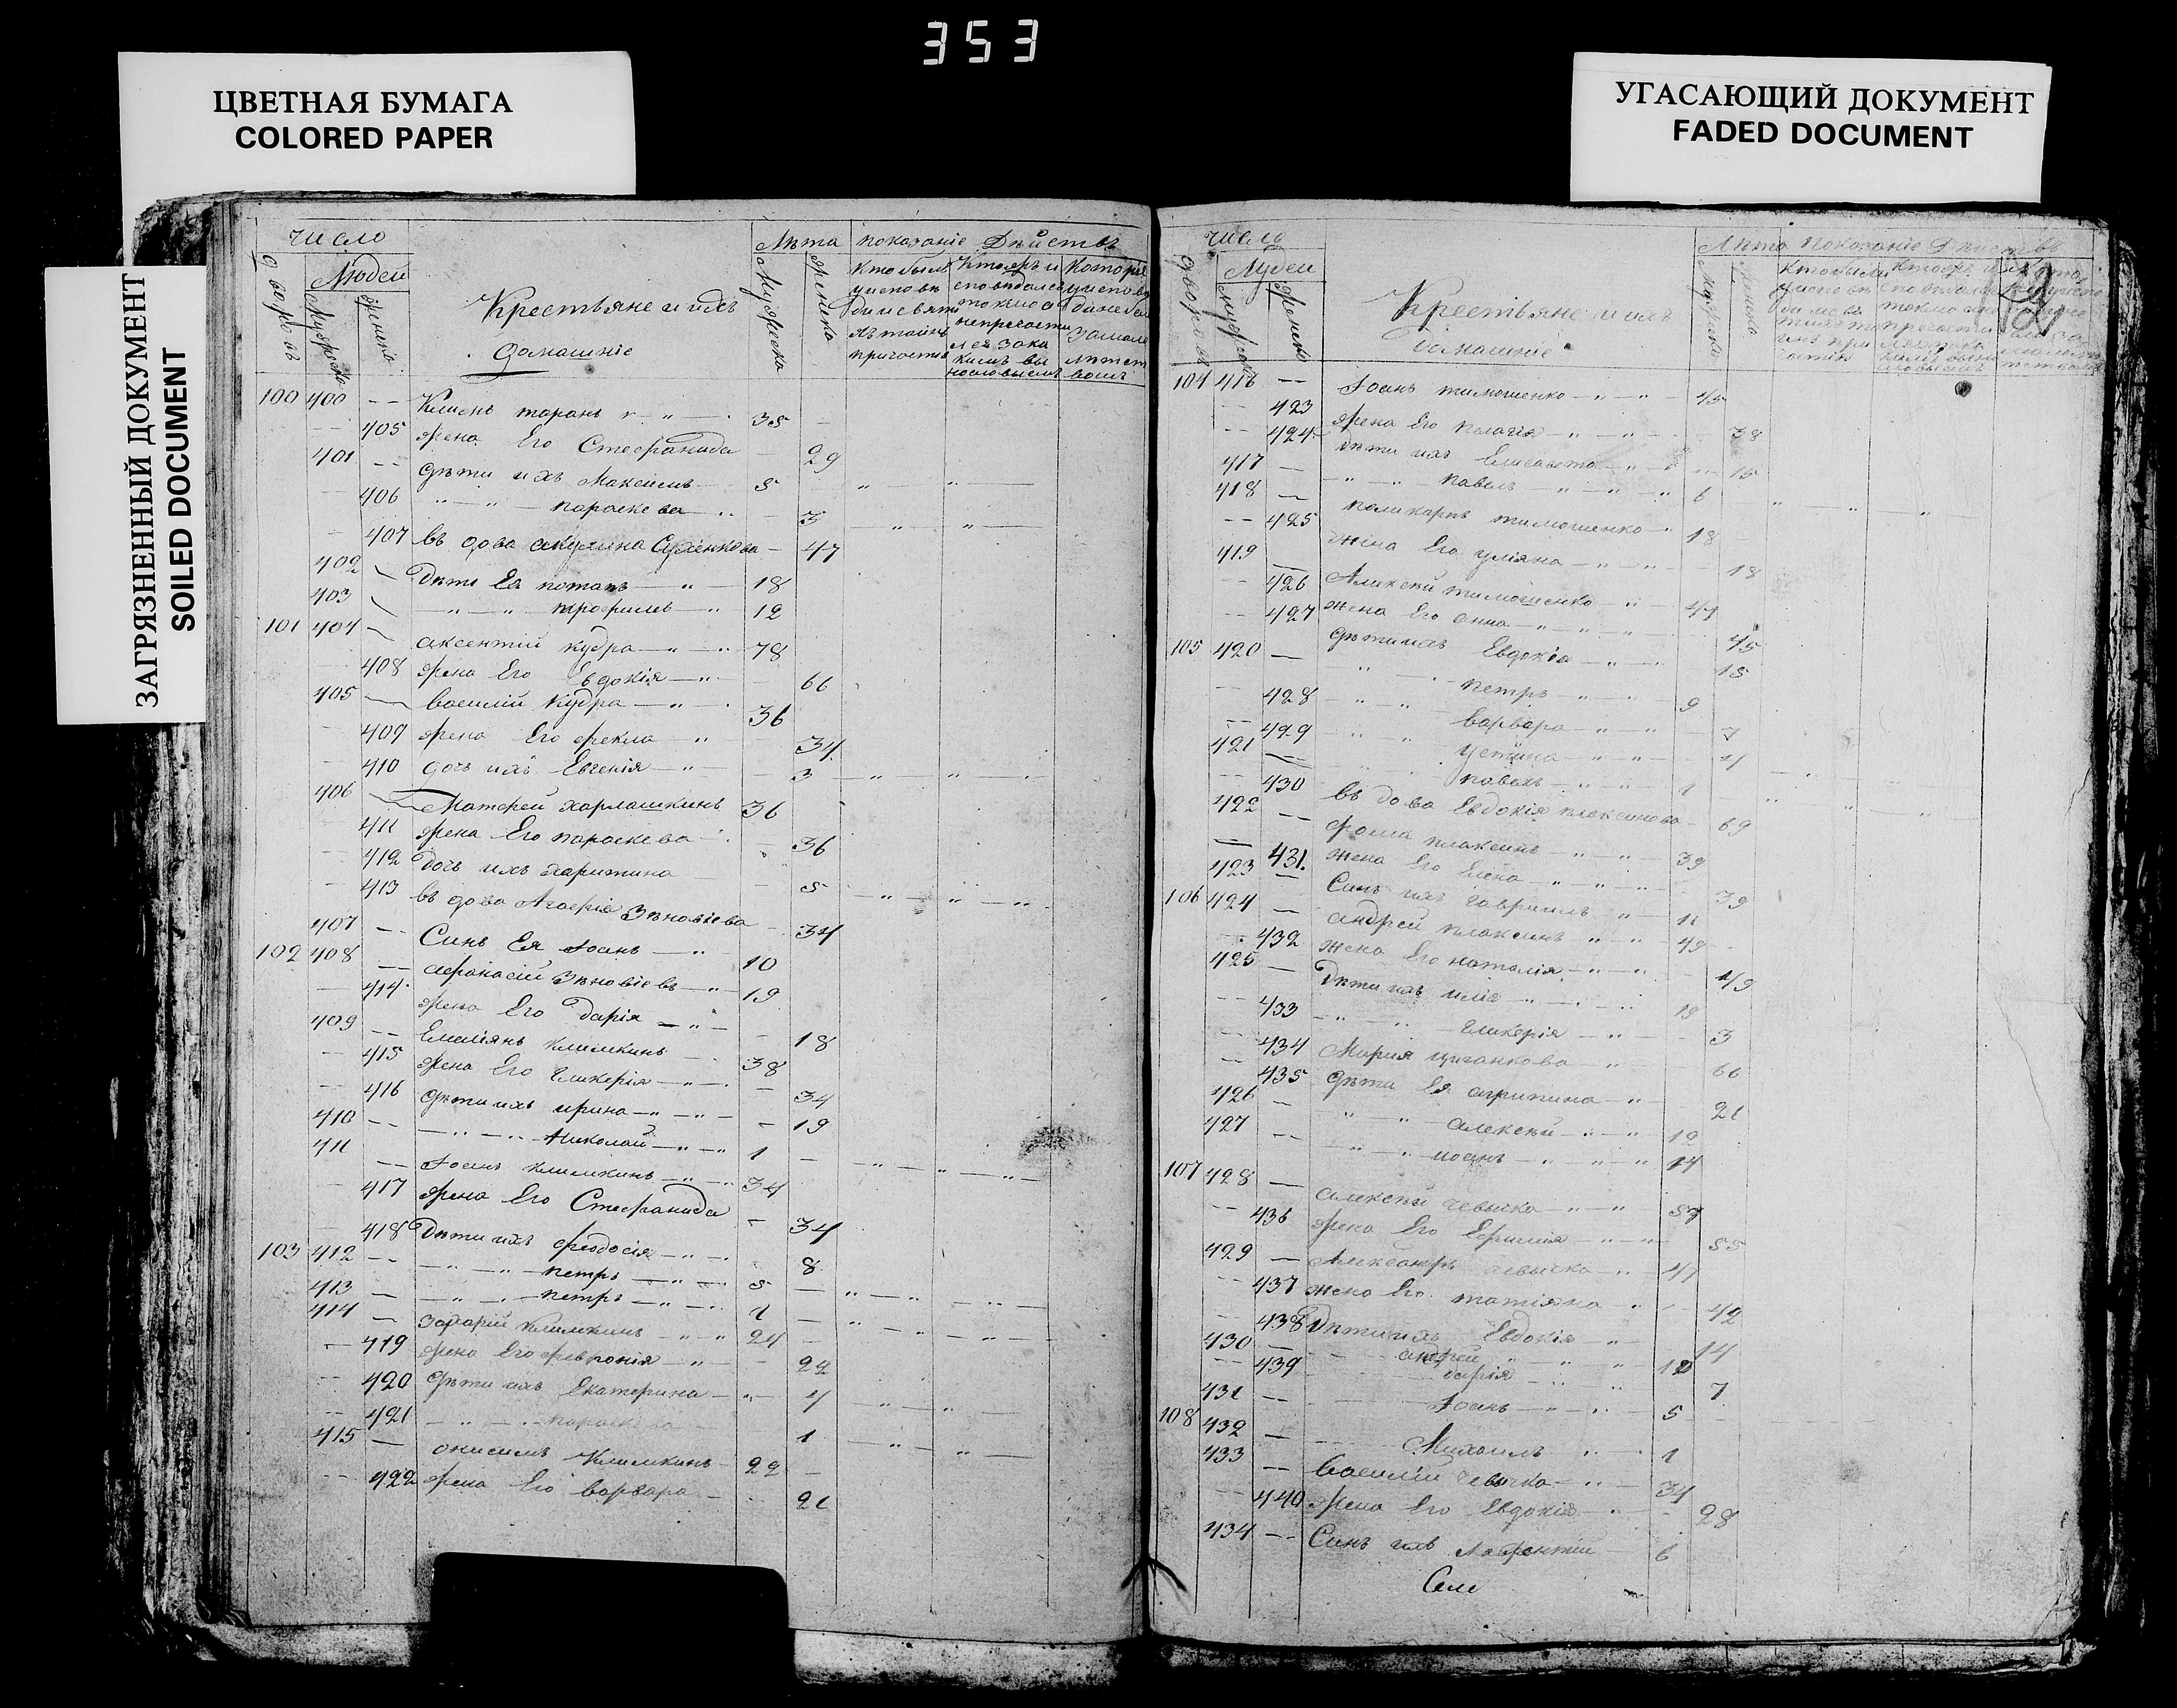 353
ЦВЕТНАЯ БУМАГА
COLORED PAPER
УГАСАЮЩИЙ ДОКУМЕНТ
FADED DOCUMENT
ЗАГРЯЗНЕННЫЙ ДОКУМЕНТ
SOILED DOCUMENT
число
Людей
Лѣта показаніе Дѣйствъ
Крестьяне и ихъ
домашніе
100 400 -- тарань 38
405 жена Его Стефанида 29
401 -- дѣти ихъ Максимъ 8
406 параскева 3
407 въ дова акулина 47
402 Дѣти Ея потапъ 18
403 трофимъ 12
101 404 аксентій кудра 78
408 жена Его Евдокія 66
405 василій Кудра 36
409 жена Его фекла 34
410 дочь ихъ Евгенія 3
406 Матфей харлашкинъ 36
411 жена Его параскева 36
412 дочь ихъ харитина 8
413 въ дова Агафія Зѣновіева 34
407 -- Синъ Ея Іоанъ 10
102 408 -- афанасій Зѣновіевъ 19
414 жена Его Дарія 18
409 -- Емиліянъ климкинъ 38
415 жена Его Гликерія 34
416 дѣти ихъ ирина 19
410 -- Николай 1
411 -- Іоанъ климкинъ 34
417 жена Его Стефанида 34
418 Дѣти ихъ феодосія 8
103 412 -- петръ 8
413 -- петръ 1
414 -- захарій климкинъ 24
419 жена Его февронія 22
420 дѣти ихъ Екатерина 4
421 параскева 1
415 -- онисимъ Климкинъ 22
422 жена Его варвара 21
число
Людей
Лѣта показаніе Дѣйствъ
Крестьяне и ихъ
домашніе
104 416 -- Іоанъ тимошенко 45
423 жена Его пелагія 38
424 дѣти ихъ Елисавета 15
417 -- павелъ 6
418 -- поликарпъ тимошенко 18
425 жена Его уліяна 18
419 -- Алексѣй тимошенко 47
426 жена Его анна 45
427 дѣти ихъ Евдокія 15
105 420 -- петръ 9
428 варвара 7
429 устина 4
421 -- павелъ 1
430 въ дова Евдокія плаксинова 69
422 -- фома плаксинъ 39
431 жена Его Елена 39
423 -- Синъ ихъ гавріилъ 11
106 424 -- андрей плаксинъ 49
432 жена Его наталія 49
425 -- Дѣти ихъ илія 19
433 гликерія 3
434 Марія циганкова 66
435 дѣти Ея агрипина 21
426 -- алексѣй 19
427 -- иоанъ 14
107 428 -- алексѣй чевычка 57
436 жена Его Ефимія 55
429 -- Александръ чевычка 47
437 жена Его татіяна 42
438 Дѣти ихъ Евдокія 14
430 -- андрей 12
439 дарія 7
431 -- Іоанъ 5
108 432 -- Михаилъ 1
433 -- Василій чевычка 34
440 жена Его Евдокія 28
434 -- Синъ ихъ лаврентій 6